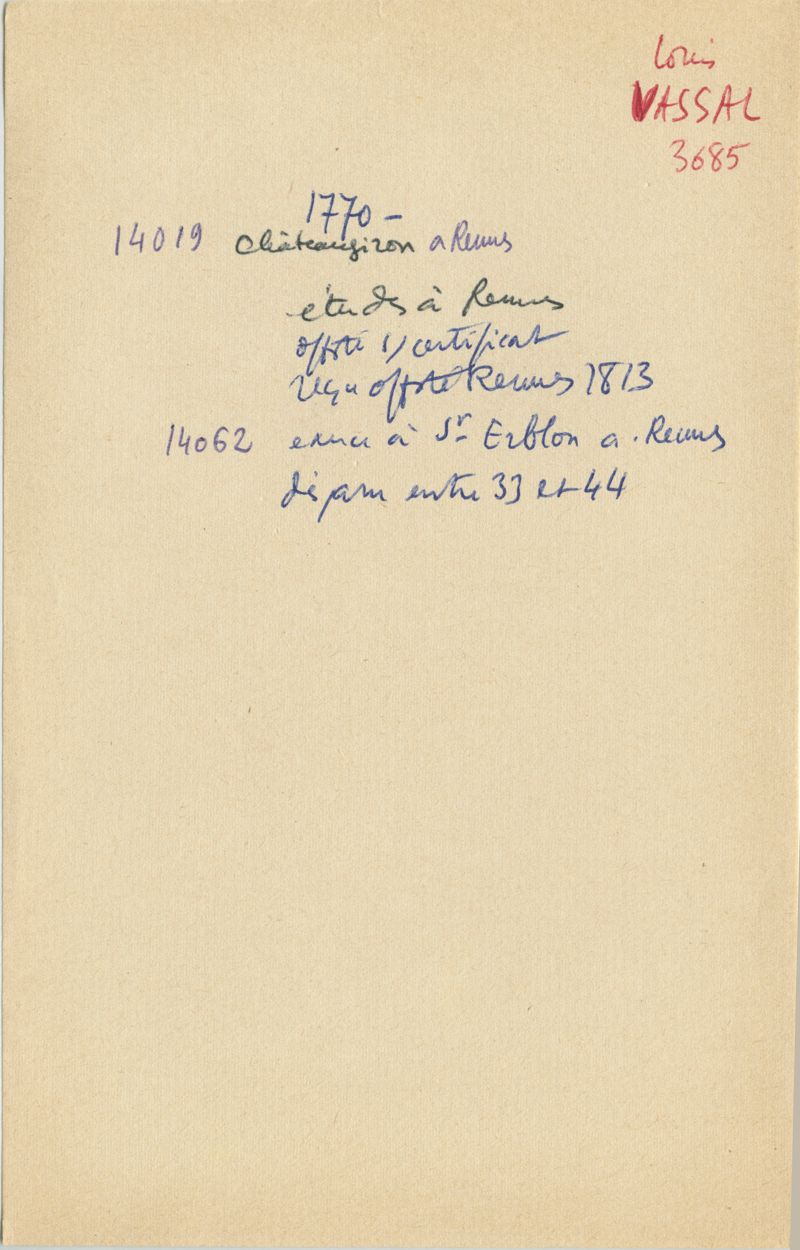 Louis
VASSAL
3685
1770 –
14019 Châteaugiron a Rennes
études à Rennes
offsté s/certificat
reçu offsté Rennes 1813
14062 exerce à St Erblon a. Rennes
disparu entre 33 et 44